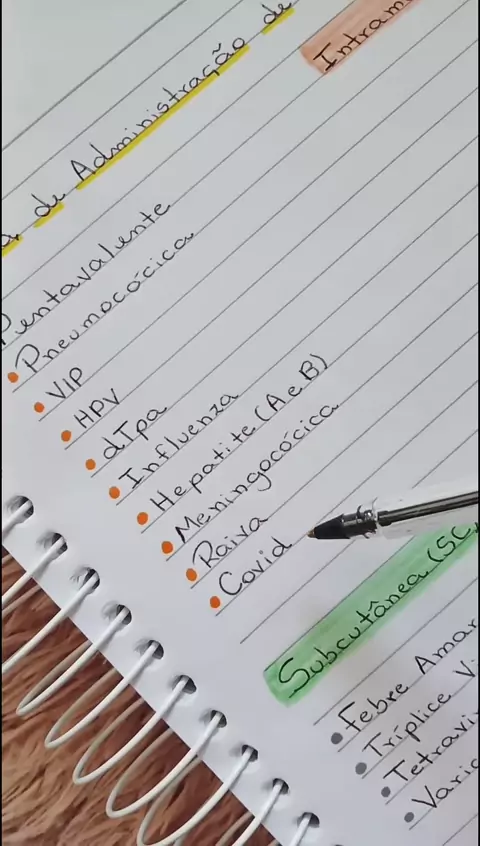 de Administração de
Intram
Pentavalente
• Pneumocócica
• VIP
• HPV
• dTpa
• Influenza
• Hepatite (A e B)
• Meningocócica
• Raiva
• Covid
Subcutânea (SC
• Febre Amar
• Tríplice Vi
• Tetravi
• Varic